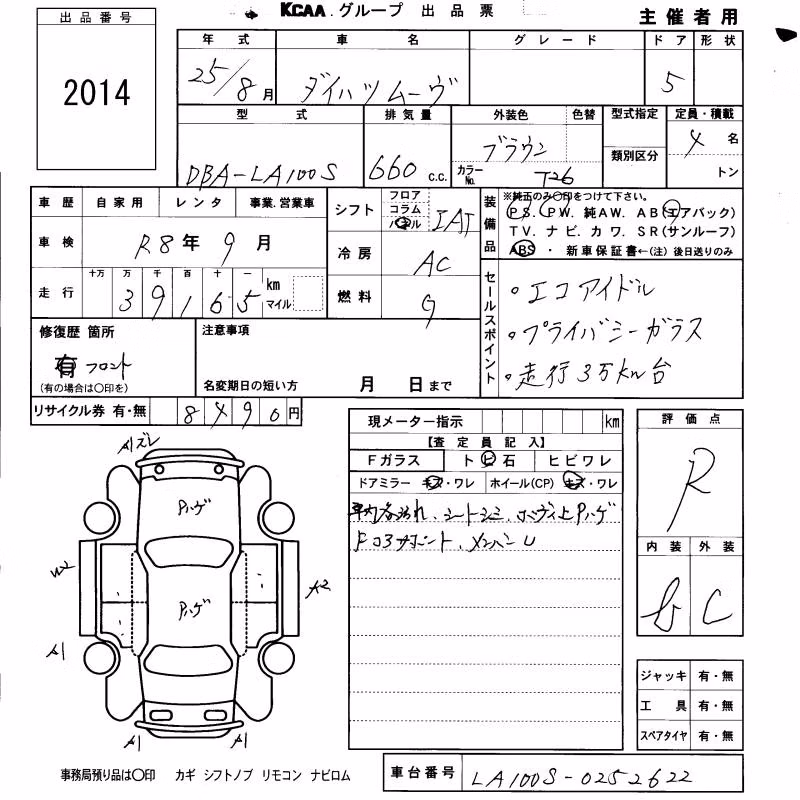 KCAA グループ 出品票
主催者用
出品番号
2014
年式 車名 グレード ドア 形状
25/8月 ダイハツムーヴ 5
型式 排気量 外装色 色替 型式指定 定員・積載
類別区分
DBA-LA100S 660 c.c. ブラウン カラーNo. T26 4名
トン
車歴 自家用 レンタ 事業.営業車
車検 R8年9月
走行 十万 万 千 百 十 一 km マイル
39165
シフト フロア コラム パネル IAT
冷房 AC
燃料 G
装備品
※純正のみ〇印をつけて下さい。
PS. PW. 純AW. AB(エアバック)
TV. ナビ. カワ. SR(サンルーフ)
ABS ・ 新車保証書←(注) 後日送りのみ
セールスポイント
・エコアイドル
・プライバシーガラス
・走行3万km台
修復歴 箇所
有 フロント
(有の場合は〇印を)
注意事項
名変期日の短い方 月 日まで
リサイクル券 有・無 8490円
現メーター指示 km
【査定員記入】
Fガラス ト ビ 石 ヒビワレ
ドアミラー キズ・ワレ ホイール(CP) キズ・ワレ
シートシミ
評価点
R
内装 外装
C
A1 ズレ
Pハゲ
W2
Pハゲ
A2
A1 A1
A1 A1
ジャッキ 有・無
工具 有・無
スペアタイヤ 有・無
事務局預り品は〇印 カギ シフトノブ リモコン ナビロム
車台番号 LA100S-0252622